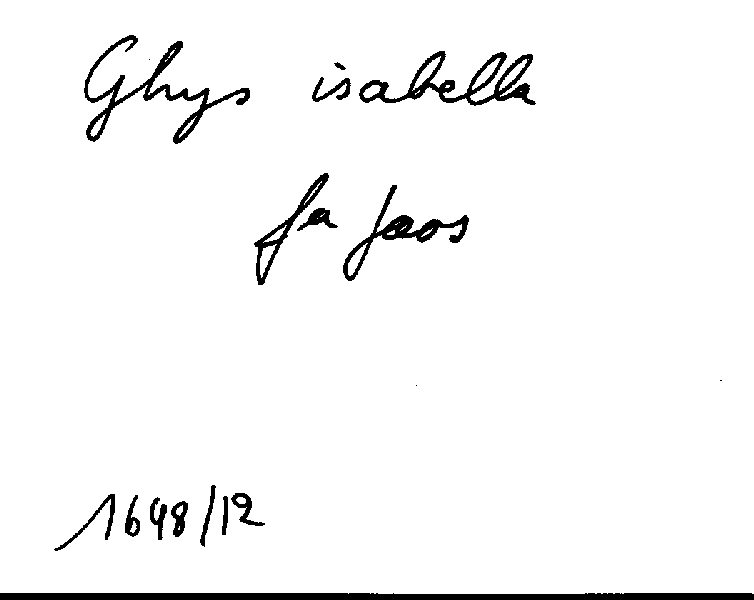 Ghys isabella
fa Joos
1648/12